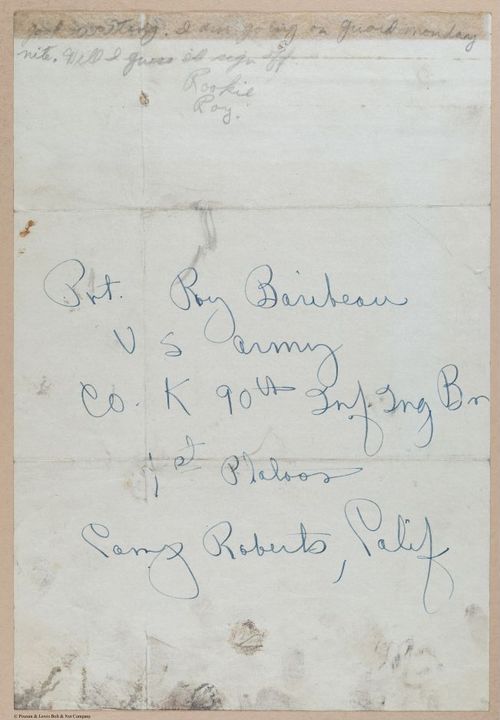 I am going on guard monday
nite. Well I guess ill sign off
Rookie
Roy.
Pvt. Roy Baribeau
U S army
Co. K 90th Inf. Tng Bn
1st Platoon
Camp Roberts, Calif
© Pearson & Lewis Bolt & Nut Company